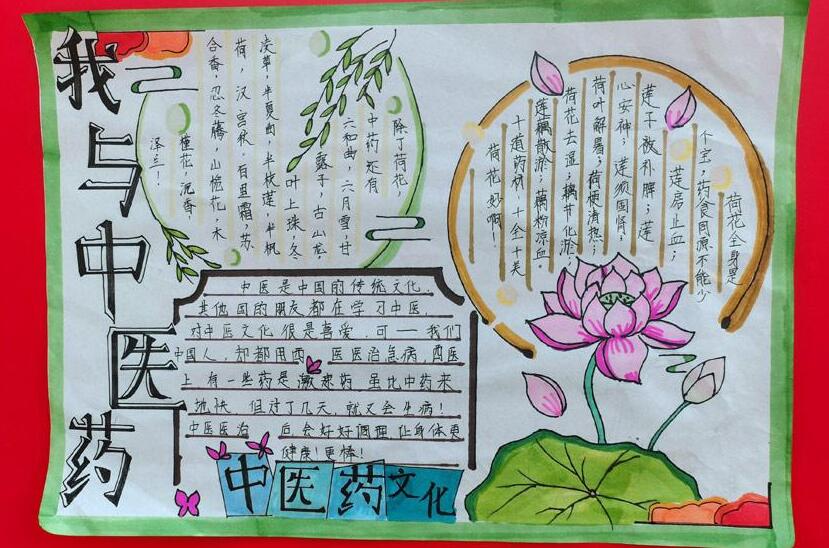 我与中医药
荷花全身是
个宝，药食同源不能少
莲房止血；
莲子散补脾；莲
心安神；莲须固肾；
荷叶解暑；荷梗清热；
荷花去湿；藕节化淤；
莲藕散淤；藕粉凉血。
十道药材，十全十美
荷花妙啊！
除了荷花，
中药还有
六和曲，六月雪，甘
露子，古山龙
叶上珠，冬
凌草，半夏曲，半枝莲，半枫
荷，汉宫秋，百里霜，苏
合香，忍冬藤，山栀花，木
槿花，沉香
泽兰！
中医是中国的传统文化，
其他国的朋友都在学习中医，
对中医文化很是喜爱，可一我们
中国人，却都用西医医治急病，西医
上有一些药是激素药 虽比中药来
地快 但过了几天，就又会生病！
中医医治 后会好好调理 让身体更
健康！更棒！
中医药文化